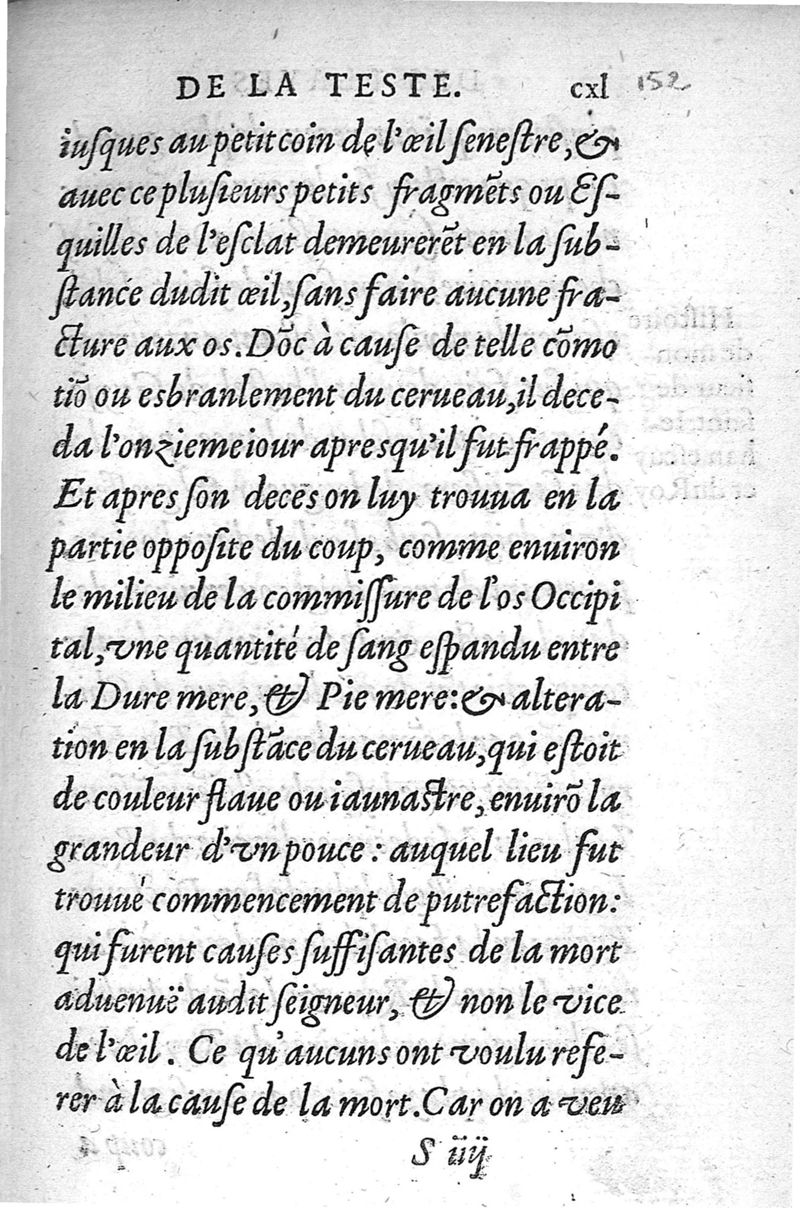 DE LA TESTE. cxl 152
iuſques au petit coin de l'œil ſeneſtre, &
auec ce pluſieurs petits fragmēts ou Eſ-
quilles de l'eſclat demeurerēt en la ſub-
ſtance dudit œil, ſans faire aucune fra-
cture aux os. Dōc à cauſe de telle cōmo
tiō ou esbranlement du cerueau, il dece-
da l'onzieme iour apres qu'il fut frappé.
Et apres ſon deces on luy trouua en la
partie oppoſite du coup, comme enuiron
le milieu de la commiſſure de l'os Occipi
tal, vne quantité de ſang eſpandu entre
la Dure mere, & Pie mere: & altera-
tion en la ſubſtāce du cerueau, qui eſtoit
de couleur flaue ou iaunaſtre, enuirō la
grandeur d'vn pouce : auquel lieu fut
trouué commencement de putrefaction:
qui furent cauſes ſuffiſantes de la mort
aduenuë audit ſeigneur, & non le vice
de l'œil. Ce qu'aucuns ont voulu refe-
rer à la cauſe de la mort. Car on a veu
S iiij